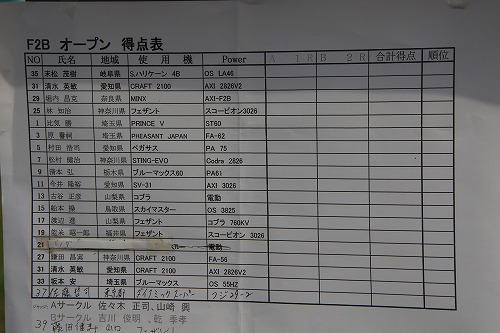 F2B オープン 得点表
NO 氏名 地域 使用機 Power A 1R B 2R 合計得点 順位
35 末松 茂樹 岐阜県 S.ハリケーン 4B OS LA46
31 清水 英敏 愛知県 CRAFT 2100 AXI 2826V2
29 堀内 昌克 奈良県 MINX AXI-F2B
25 林 知治 神奈川県 フェザント スコーピオン3026
1 比気 勝 埼玉県 PRINCE V ST60
3 原 埼玉県 PHEASANT JAPAN FA-62
5 村田 浩司 愛知県 ペガサス PA 75
7 松村 健治 神奈川県 STING-EVO Codra 2826
9 弘 栃木県 ブルーマックス60 PA61
11 今井 隆裕 愛知県 SV-31 AXI 3026
13 古谷 正彦 山梨県 コブラ 電動
15 船本 操 鳥取県 スカイマスター OS 3825
17 渡辺 進 山梨県 フェザント コブラ 760KV
19 能米 昭一郎 福井県 フェザント スコーピオン 3026
21 電動
27 鎌田 昌実 神奈川県 CRAFT 2100 FA-56
31 清水 英敏 愛知県 CRAFT 2100 AXI 2826V2
33 坂本 安 埼玉県 ブルーマックス OS 55HZ
37 佐藤 哲司 東京都 ダイナミックスーパー
ジャッジ Aサークル 佐々木 正司、山崎 興
Bサークル 吉川 俊明、乾 季孝
38